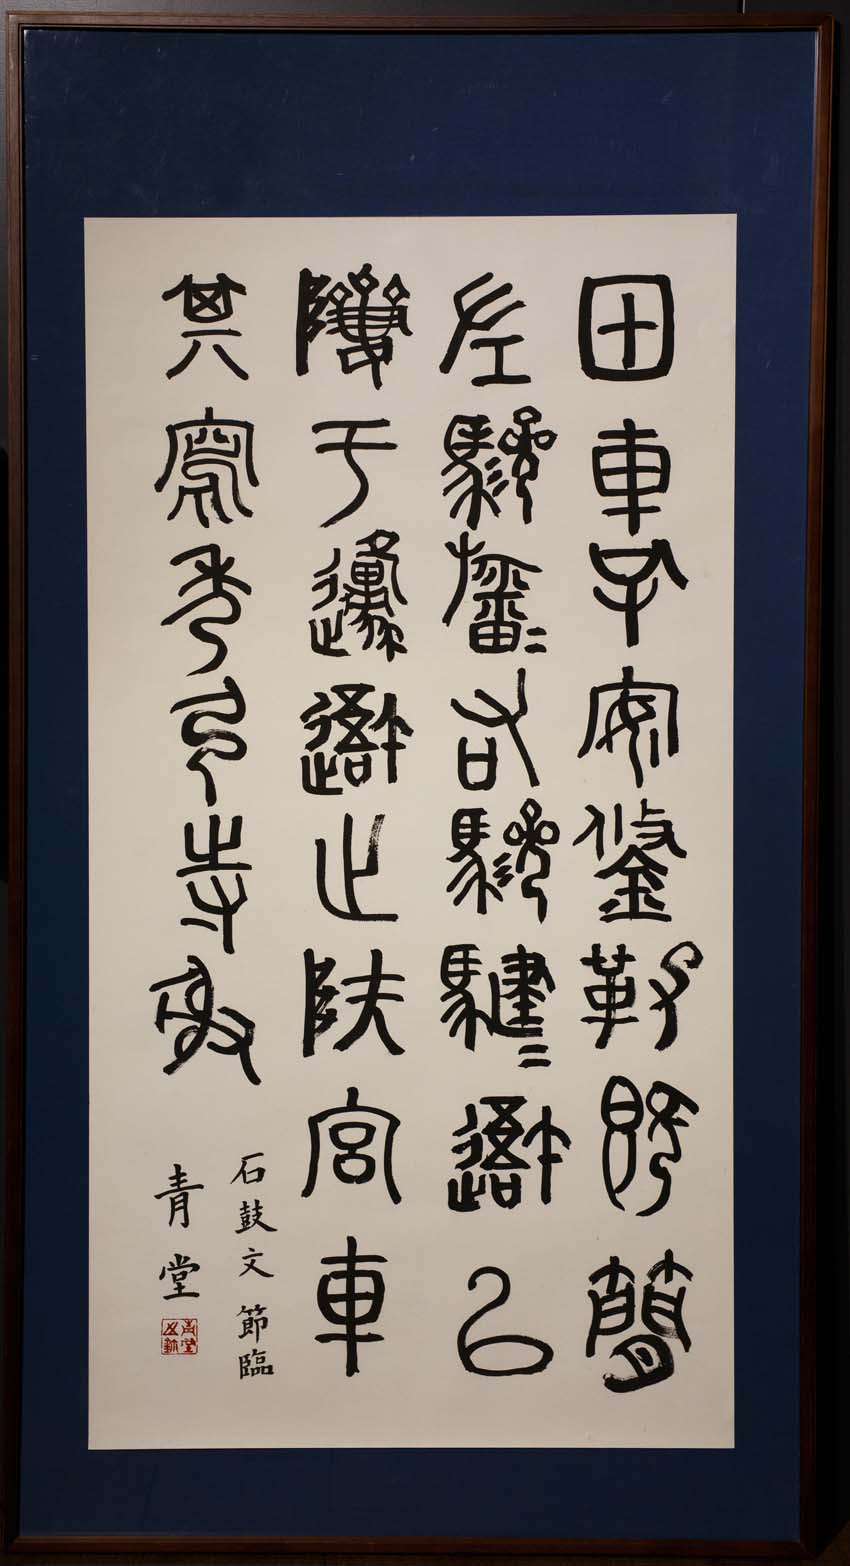 田車孔安鋚勒既簡
左驂旛〻右驂騝〻吾以
隮于邍吾止陕宮車
其寫秀弓寺射
石鼓文 節臨
青堂